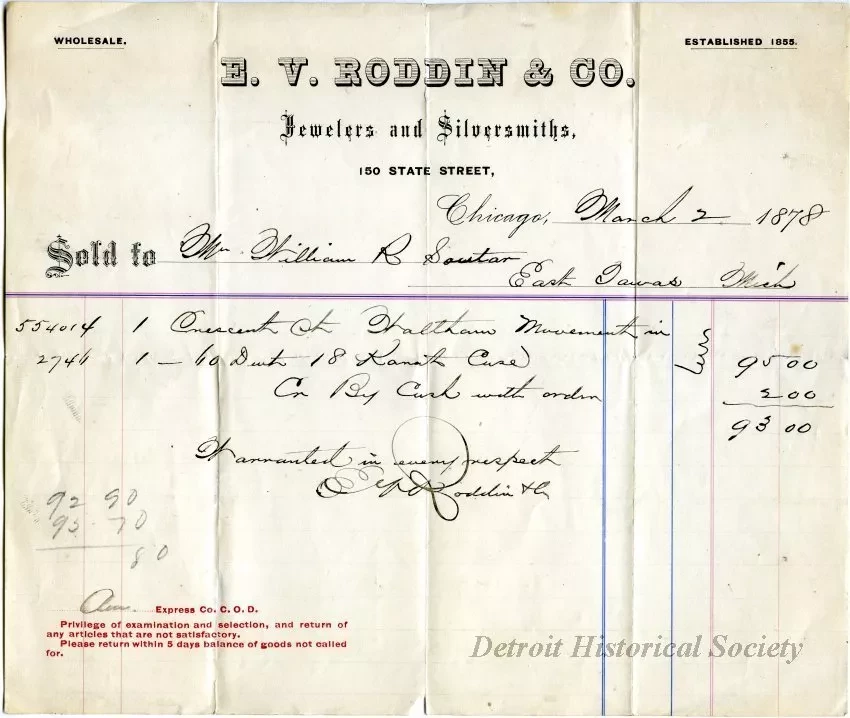 WHOLESALE.
ESTABLISHED 1855.
E. V. RODDIN & CO.
Jewelers and Silversmiths,
150 STATE STREET,
Chicago, March 2 1878
Sold to Mr. William R Soutar
East Tawas Mich
554014 1 Crescent St Waltham Movement in
2746 1 – 60 Dwts 18 Karats Case 95 00
Cr By Cash with order 2 00
93 00
Warranted in every respect
E V Roddin & Co
92 90
93 70
80
Am. Express Co. C. O. D.
Privilege of examination and selection, and return of
any articles that are not satisfactory.
Please return within 5 days balance of goods not called
for.
Detroit Historical Society